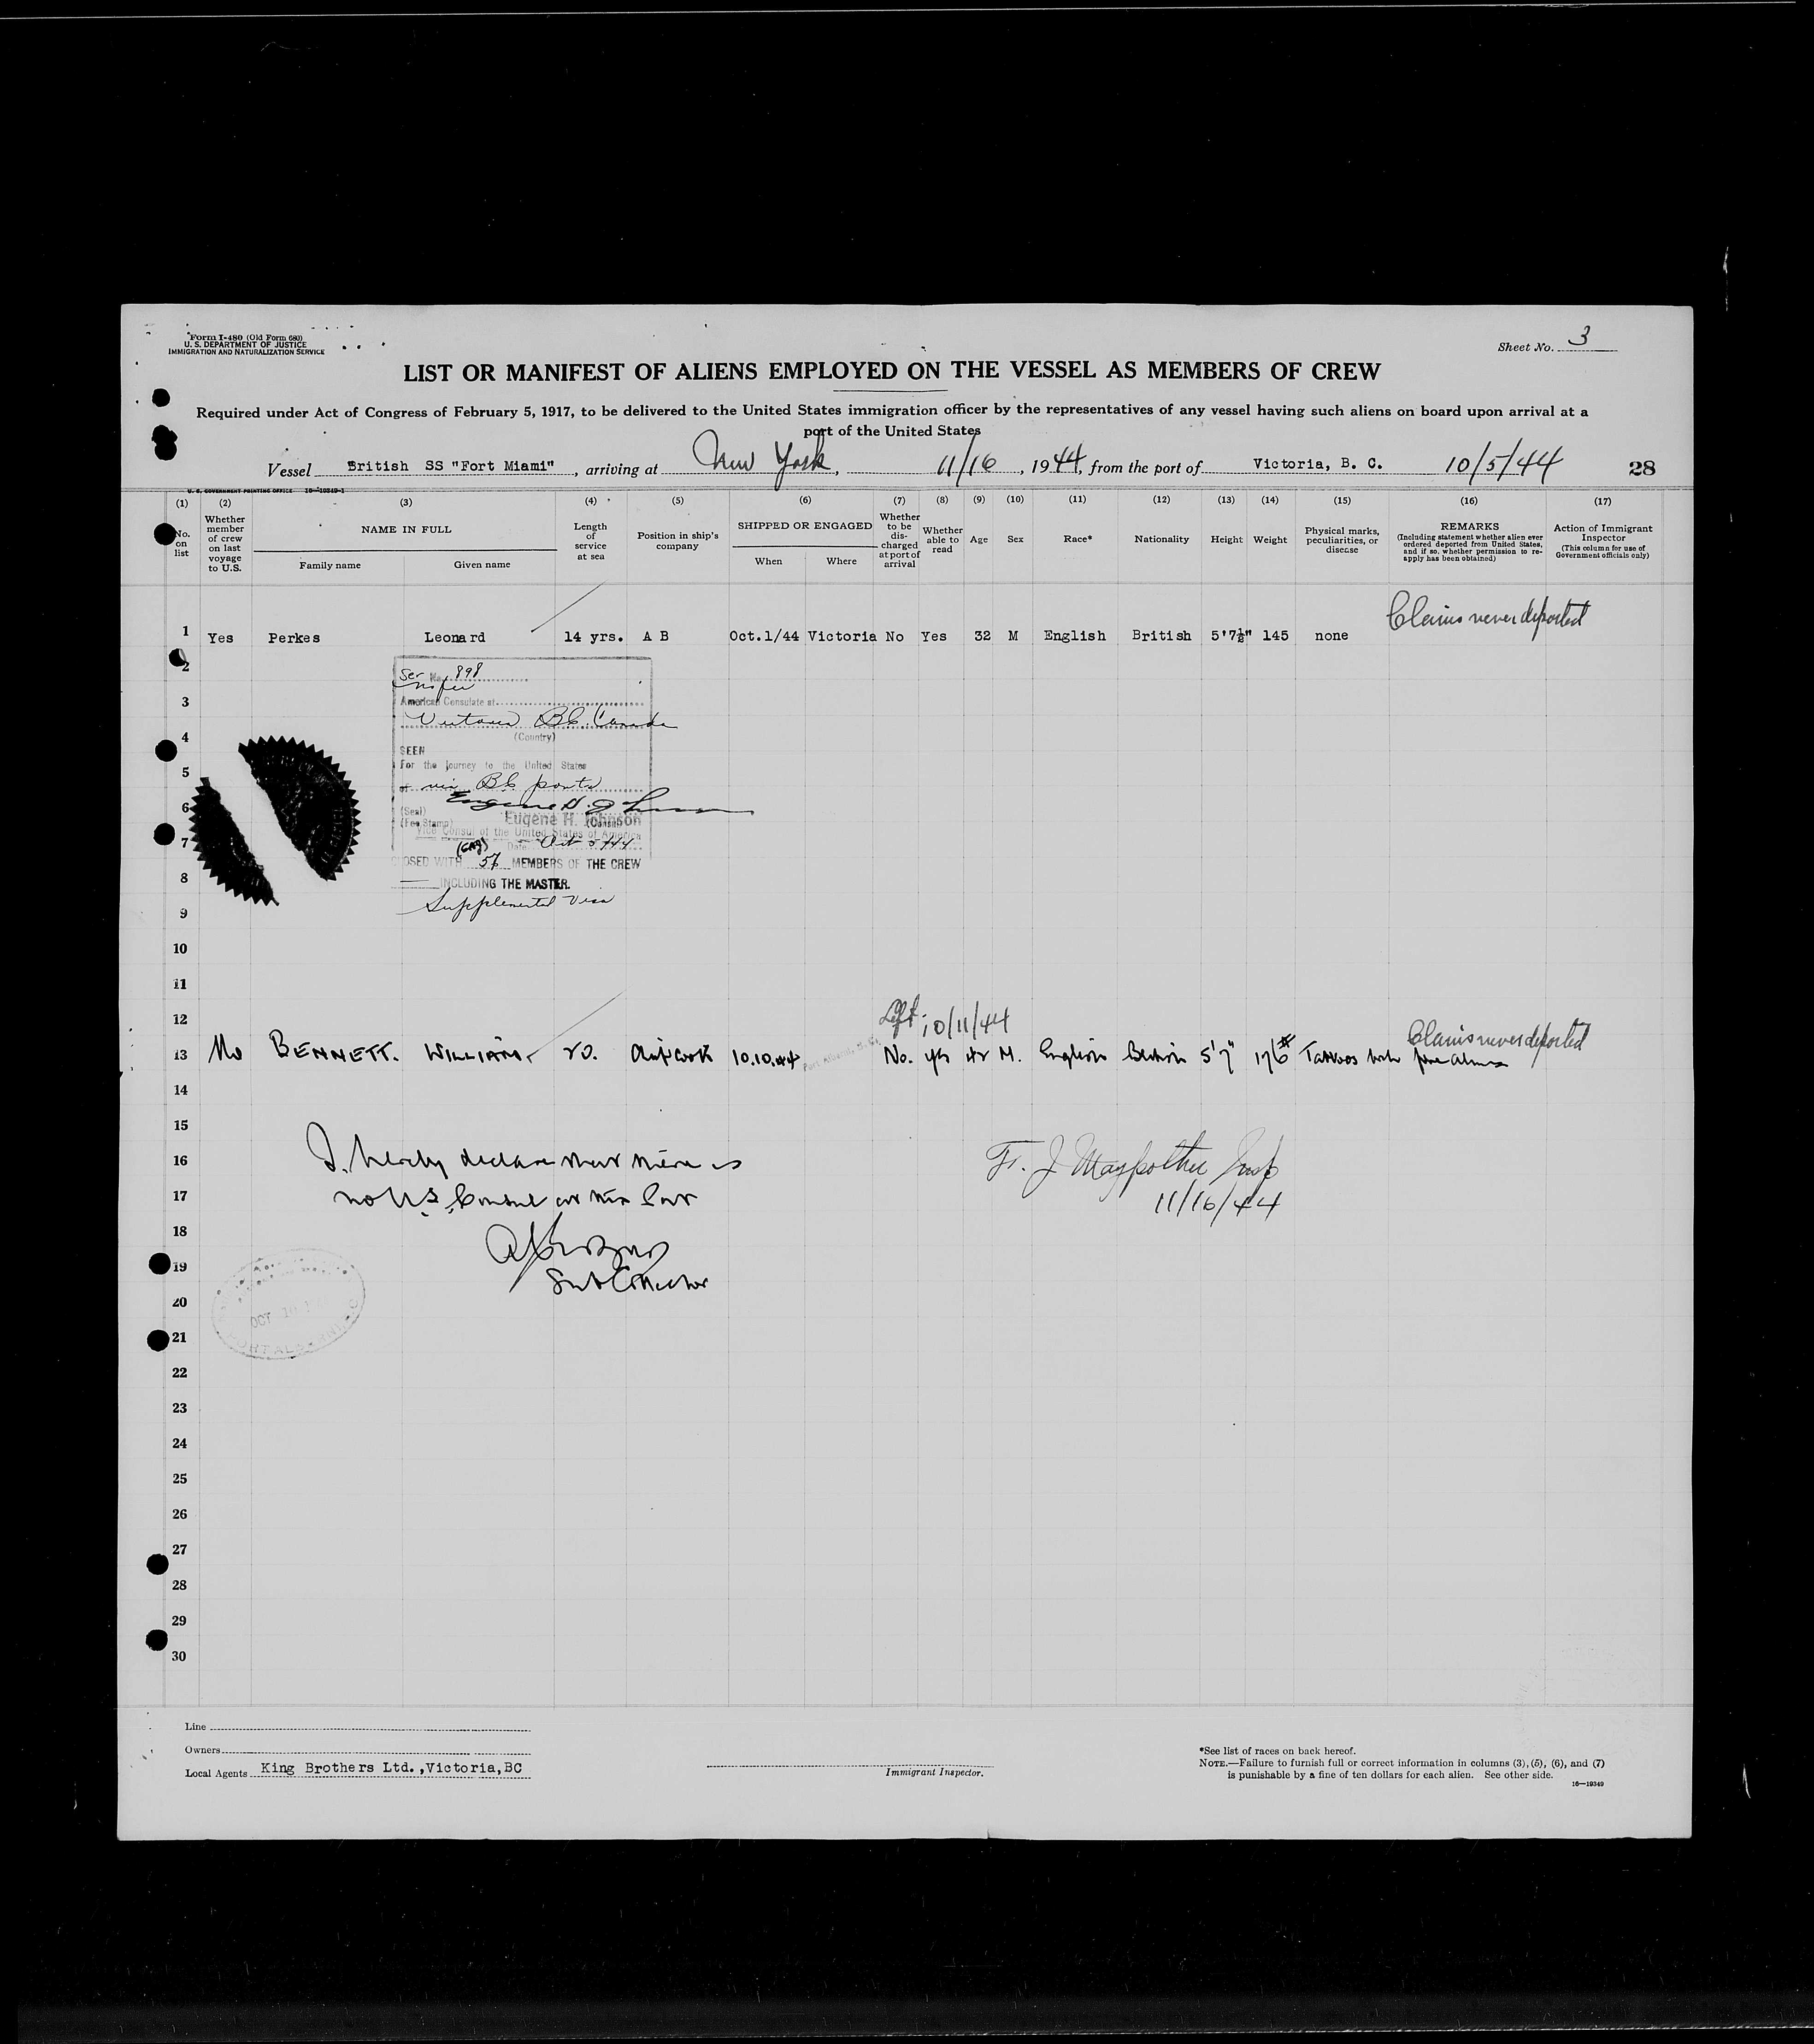 Form I-480 (Old Form 680)
U. S. DEPARTMENT OF JUSTICE
IMMIGRATION AND NATURALIZATION SERVICE
Sheet No. 3
LIST OR MANIFEST OF ALIENS EMPLOYED ON THE VESSEL AS MEMBERS OF CREW
Required under Act of Congress of February 5, 1917, to be delivered to the United States immigration officer by the representatives of any vessel having such aliens on board upon arrival at a
port of the United States
Vessel British SS "Fort Miami", arriving at New York, 11/16, 1944, from the port of Victoria, B. C. 10/5/44 28
U. S. GOVERNMENT PRINTING OFFICE 16-19349-1
(1) (2) (3) (4) (5) (6) (7) (8) (9) (10) (11) (12) (13) (14) (15) (16) (17)
No. on list
Whether member of crew on last voyage to U.S.
NAME IN FULL
Family name Given name
Length of service at sea
Position in ship's company
SHIPPED OR ENGAGED
When Where
Whether to be discharged at port of arrival
Whether able to read
Age
Sex
Race*
Nationality
Height
Weight
Physical marks, peculiarities, or disease
REMARKS
(Including statement whether alien ever ordered deported from United States, and if so, whether permission to reapply has been obtained)
Action of Immigrant Inspector
(This column for use of Government officials only)
Claims never deported
1 Yes Perkes Leonard 14 yrs. A B Oct.1/44 Victoria No Yes 32 M English British 5'7½" 145 none
2
Ser No. 898
no fee
3
American Consulate at
Victoria B.C. Canada
4
(Country)
SEEN
5
For the journey to the United States
via B.C. ports
6
(Seal)
(Fee Stamp)
Eugene H. Johnson
(Consul)
Vice Consul of the United States of America
7
Date Oct 5 44
CLOSED WITH 56 MEMBERS OF THE CREW
8
INCLUDING THE MASTER.
Supplemental Visa
9
10
11
12
Left 10/11/44
Claims never deported
13 No BENNETT. WILLIAM. 20. Cook 10.10.44 Port Alberni, B.C. No. yes M. English British 5'7" 176# Tattoos both fore arms
14
15
16
I. hereby declare that there is
F. J. Maypother Insp
17
no U.S. Consul at this Port
11/16/44
18
19
Sub Collector
20
OCT 10
21
PORT ALBERNI
22
23
24
25
26
27
28
29
30
Line
Owners
Local Agents King Brothers Ltd.,Victoria,BC
Immigrant Inspector.
*See list of races on back hereof.
NOTE.—Failure to furnish full or correct information in columns (3), (5), (6), and (7)
is punishable by a fine of ten dollars for each alien. See other side.
16—19349